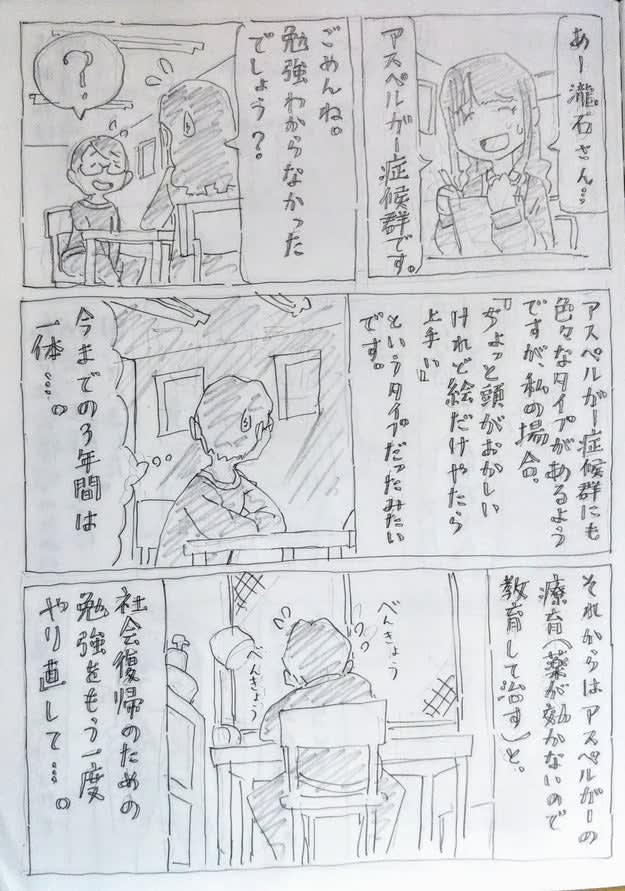 あー瀧石さん…
アスペルガー症候群です。
ごめんね。
勉強わからなかった
でしょう？。
？
アスペルガー症候群にも
色々なタイプがあるよう
ですが、私の場合。
「ちょっと頭がおかしい
けれど絵だけやたら
上手い」
というタイプだったみたい
です。
今までの3年間は
一体…。
それからはアスペルガーの
療育(薬が効かないので
教育して治す)と。
べんきょう
べんきょう
社会復帰のための
勉強をもう一度
やり直して…。